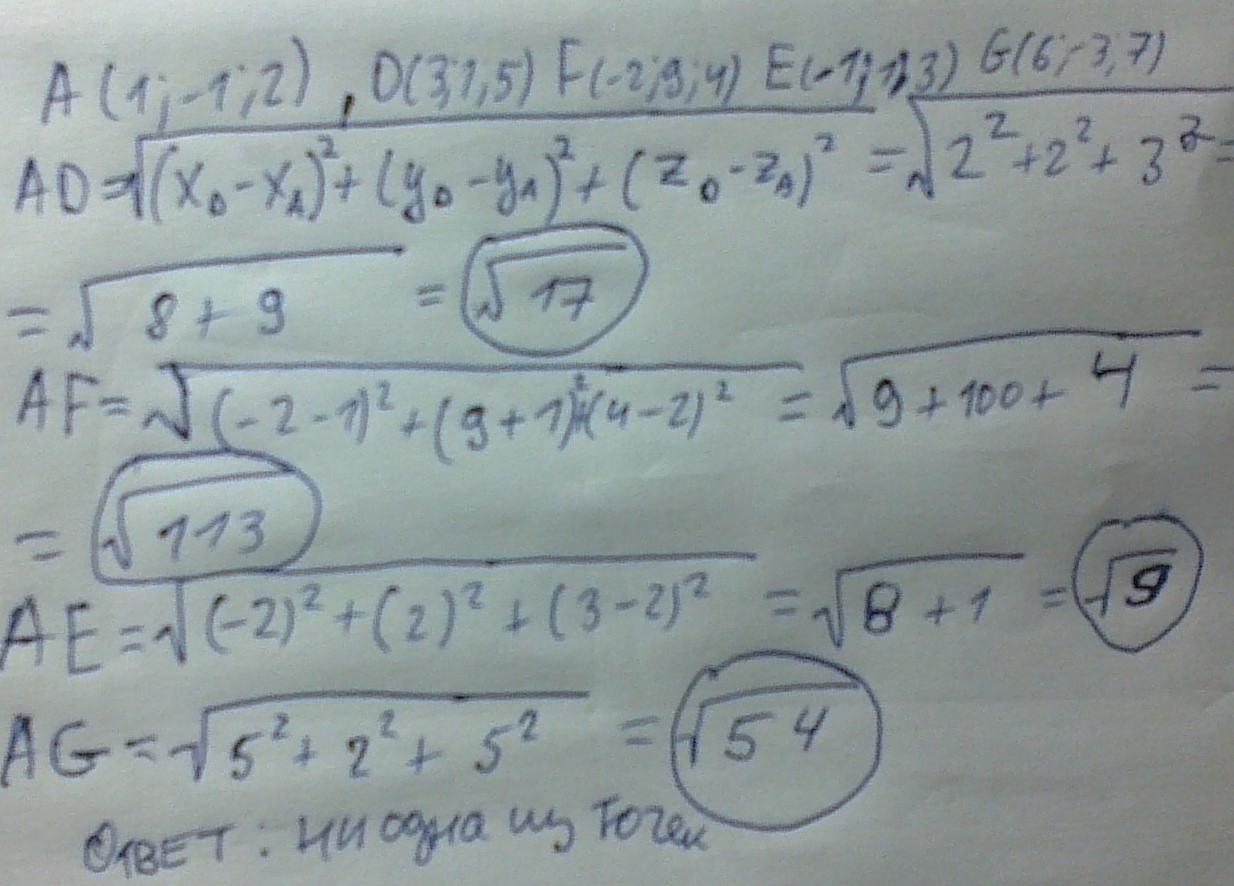 A (1; -1; 2) , D(3;1,5) F(-2;9;4) E(-1;1,3) G(6;-3,7)
AD = √((x_D - x_A)² + (y_D - y_A)² + (z_D - z_A)²) = √(2² + 2² + 3²) =
= √(8 + 9) = √17
AF = √((-2-1)² + (9+1)² + (4-2)²) = √(9 + 100 + 4) =
= √113
AE = √((-2)² + (2)² + (3-2)²) = √(8 + 1) = √9
AG = √(5² + 2² + 5²) = √54
ОТВЕТ : ни одна из точек